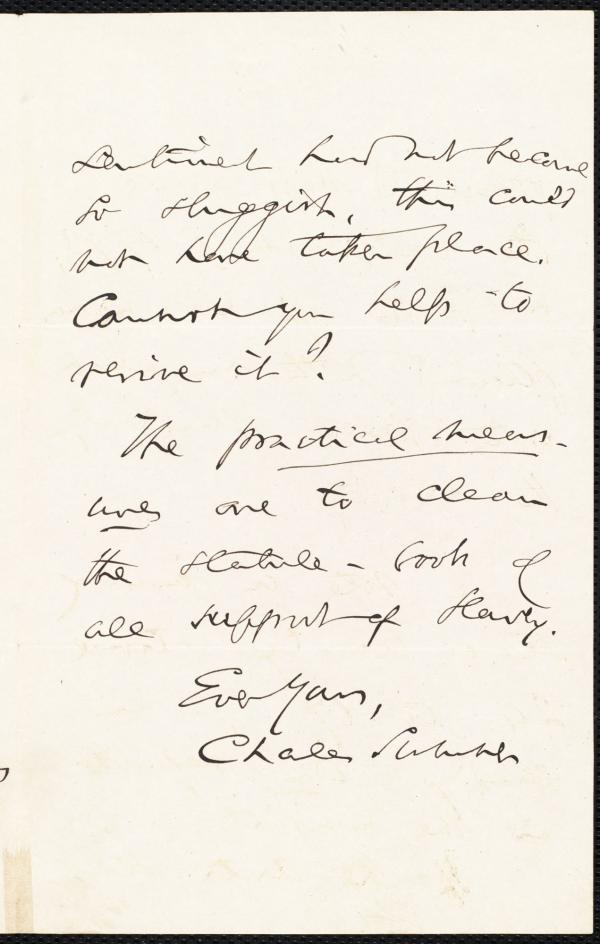 sentiment had not become
so sluggish, this could
not have taken place.
Cannot you help to
revive it?
The practical meas-
ures are to clean
the statute-book of
all support of Slavery.
Ever Yours,
Charles Sumner